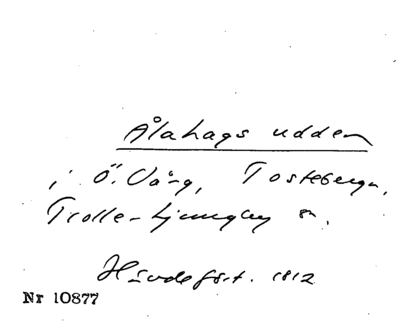 Ålahags udden
i Ö. Vång, Tosteberga,
Trolle-Ljungby sn.
Hävdefört. 1812
Nr 10877